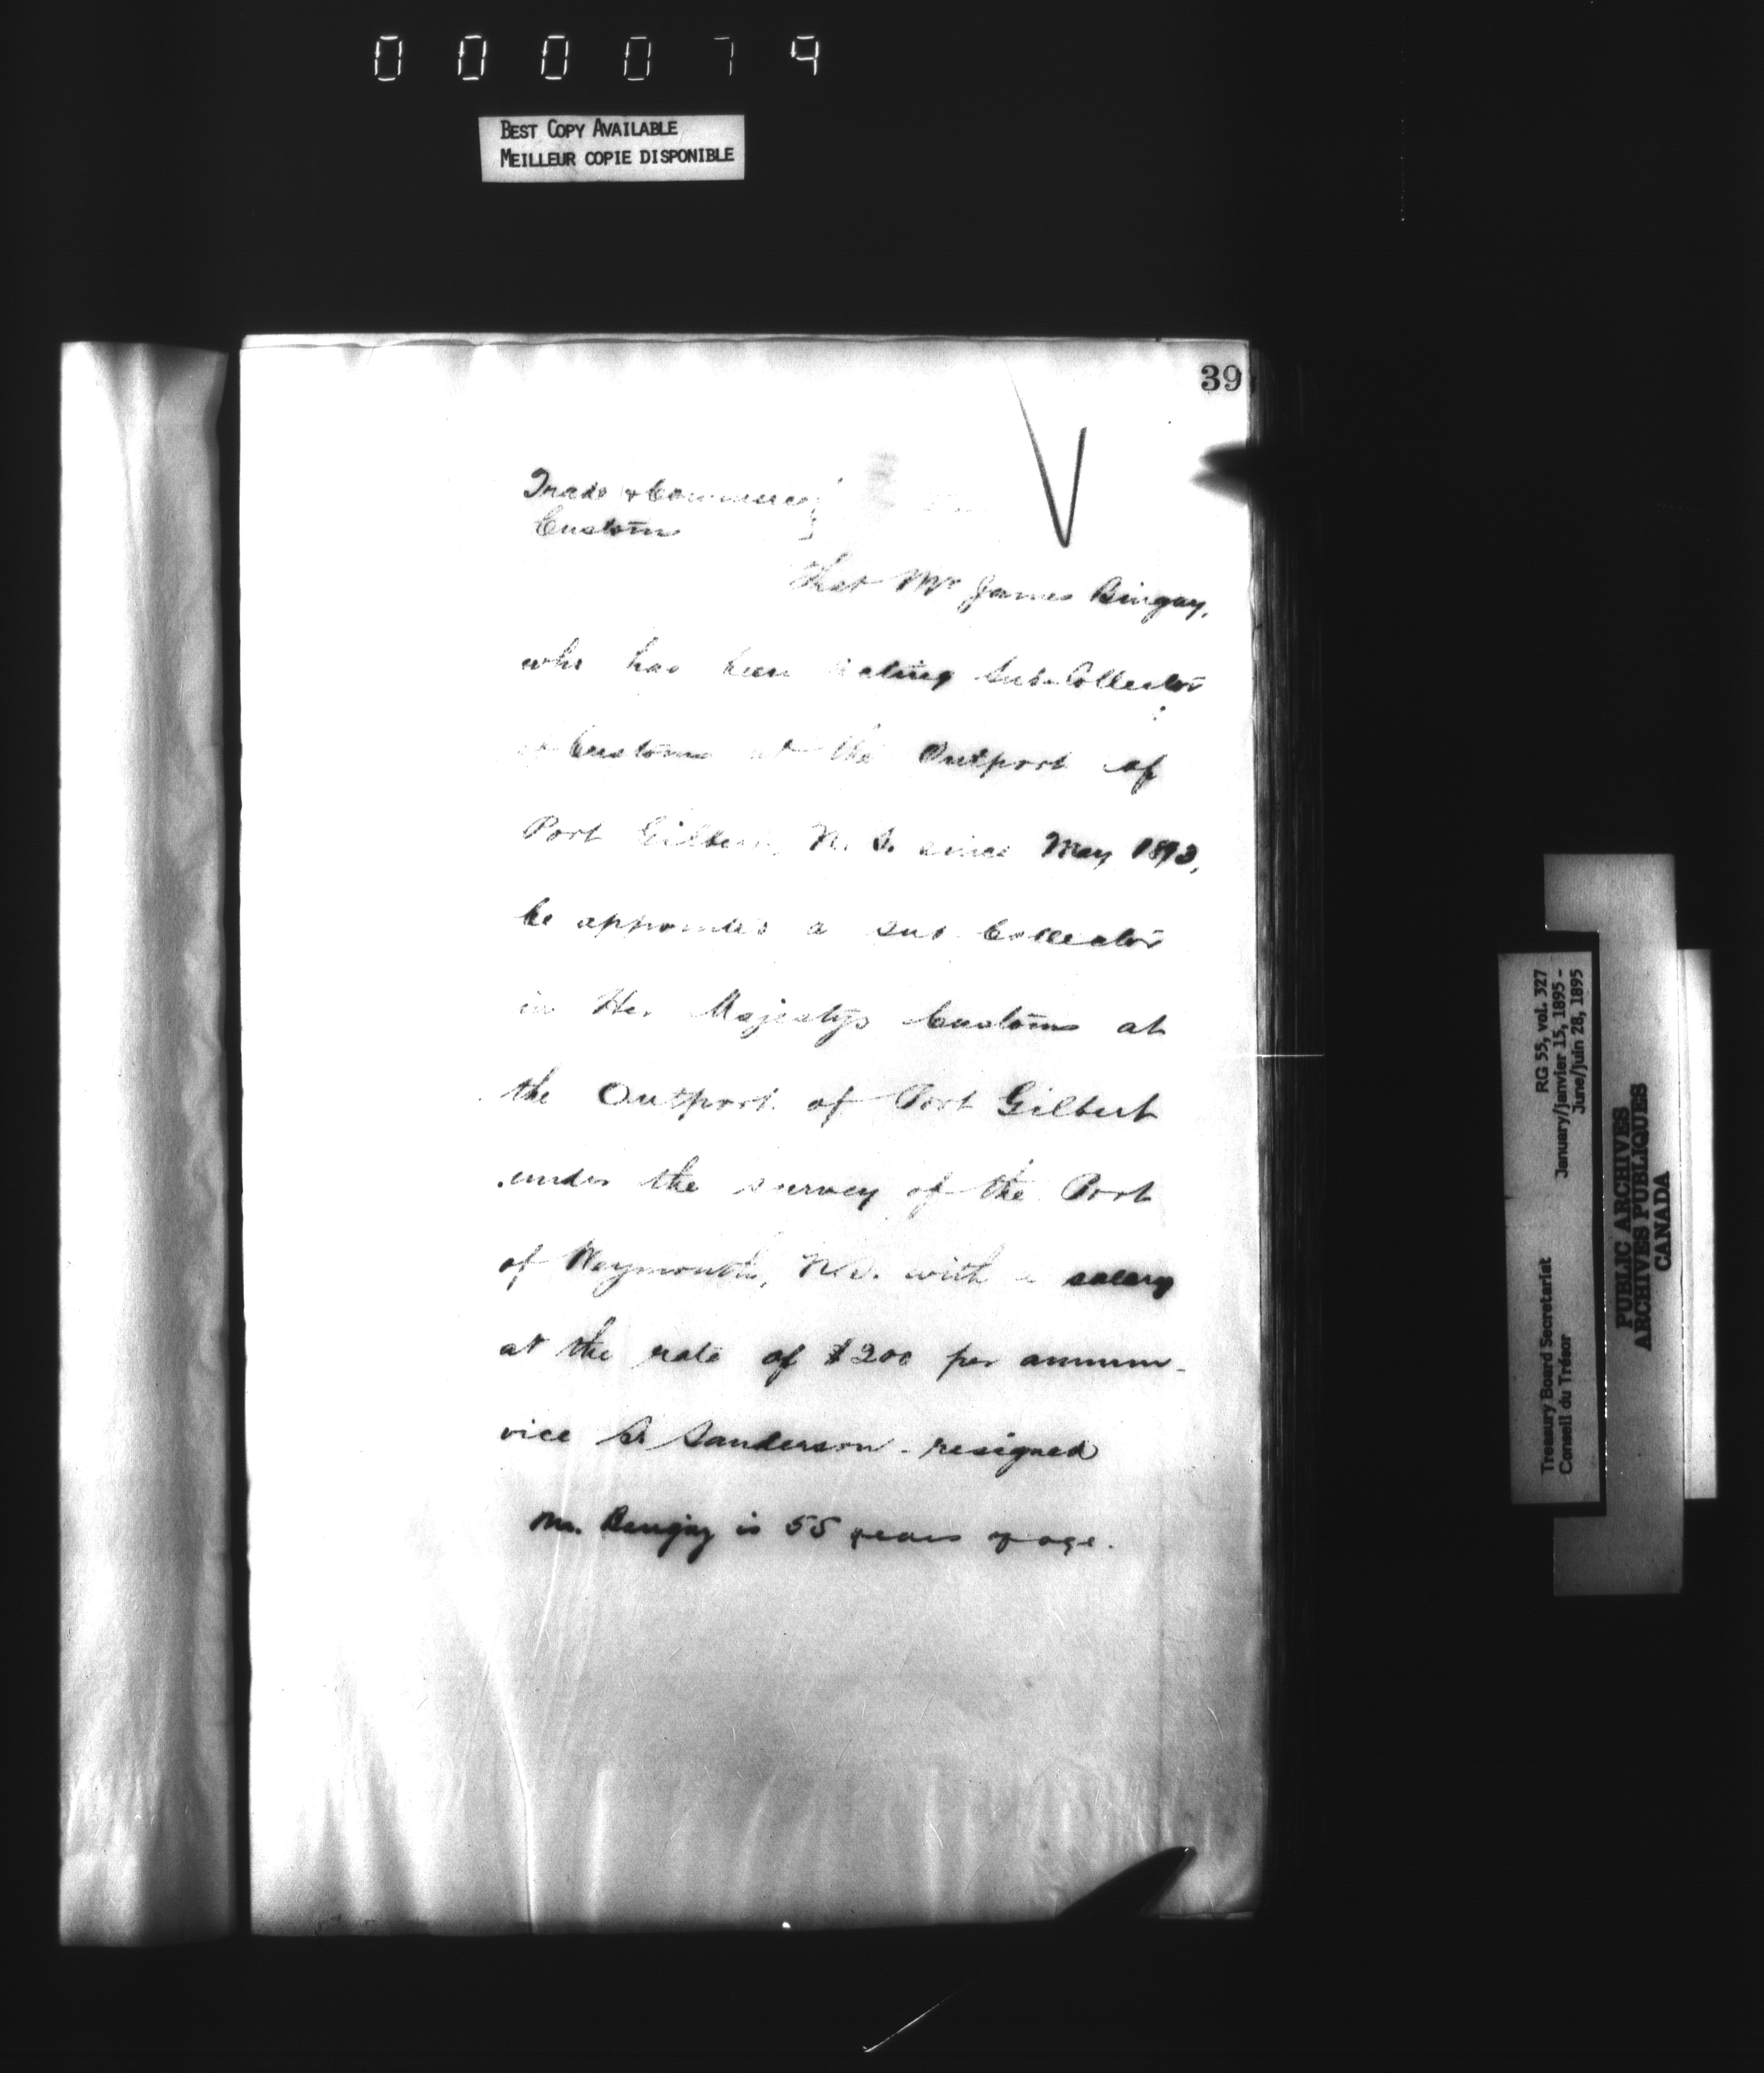 000079
BEST COPY AVAILABLE
MEILLEUR COPIE DISPONIBLE
39
Trade & Commerce
Customs
That Mr James Bingay,
who has been acting Sub-Collector
of Customs at the Outport of
Port Gilbert, N.S. since May 1893,
be appointed a sub Collector
in Her Majesty's Customs at
the Outport of Port Gilbert
under the survey of the Port
of Weymouth, N.S. with a salary
at the rate of $200 per annum-
vice Sanderson - resigned
Mr. Bingay is 55 years of age.
Treasury Board Secretariat
Conseil du Trésor
RG 55, vol. 327
January/janvier 15, 1895 -
June/juin 28, 1895
PUBLIC ARCHIVES
ARCHIVES PUBLIQUES
CANADA